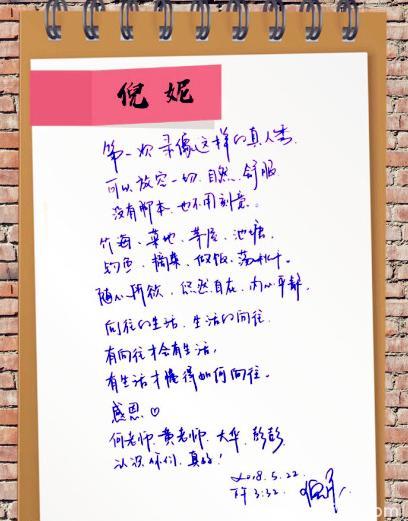 倪妮
第一次录像这样的真人秀,
可以放空一切,自然、舒服
没有脚本,也不用刻意。
竹海、菜地、茅屋、池塘,
钓鱼、摘菜、做饭、荡秋千
随心所欲、悠然自在、内心平静,
向往的生活,生活的向往
有向往才会有生活,
有生活才懂得如何向往。
感恩♡
何老师、黄老师、大华、彭彭
认识你们,真好!
2018.5.22
下午3:32 倪妮